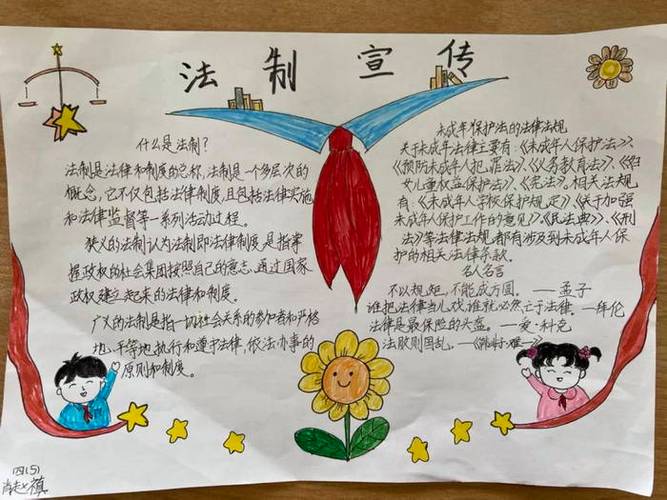 法制宣传
什么是法制?
法制是法律和制度的总称,法制是一个多层次的
概念,它不仅包括法律制度,且包括法律实施
和法律监督等一系列活动过程。
狭义的法制认为法制即法律制度,是指掌
握政权的社会集团按照自己的意志、通过国家
政权建立起来的法律和制度。
广义的法制是指一切社会关系的参加者严格
地、平等地执行和遵守法律,依法办事的
原则和制度。
未成年保护法的法律法规
关于未成年法律主要有:《未成年人保护法》、
《预防未成年人犯罪法》、《义务教育法》、《妇
女儿童权益保护法》、《宪法》。相关法规
有:《未成年人学校保护规定》、《关于加强
未成年人保护工作的意见》、《民法典》、《刑
法》等法律法规都有涉及到未成年人保
护的相关法律条款。
名人名言
不以规矩,不能成方圆。——孟子
谁把法律当儿戏,谁就必然亡于法律。—拜伦
法律是最保险的头盔。——爱·科克
法败则国乱。——《韩非子·难一》
四(5)
肖赵禛